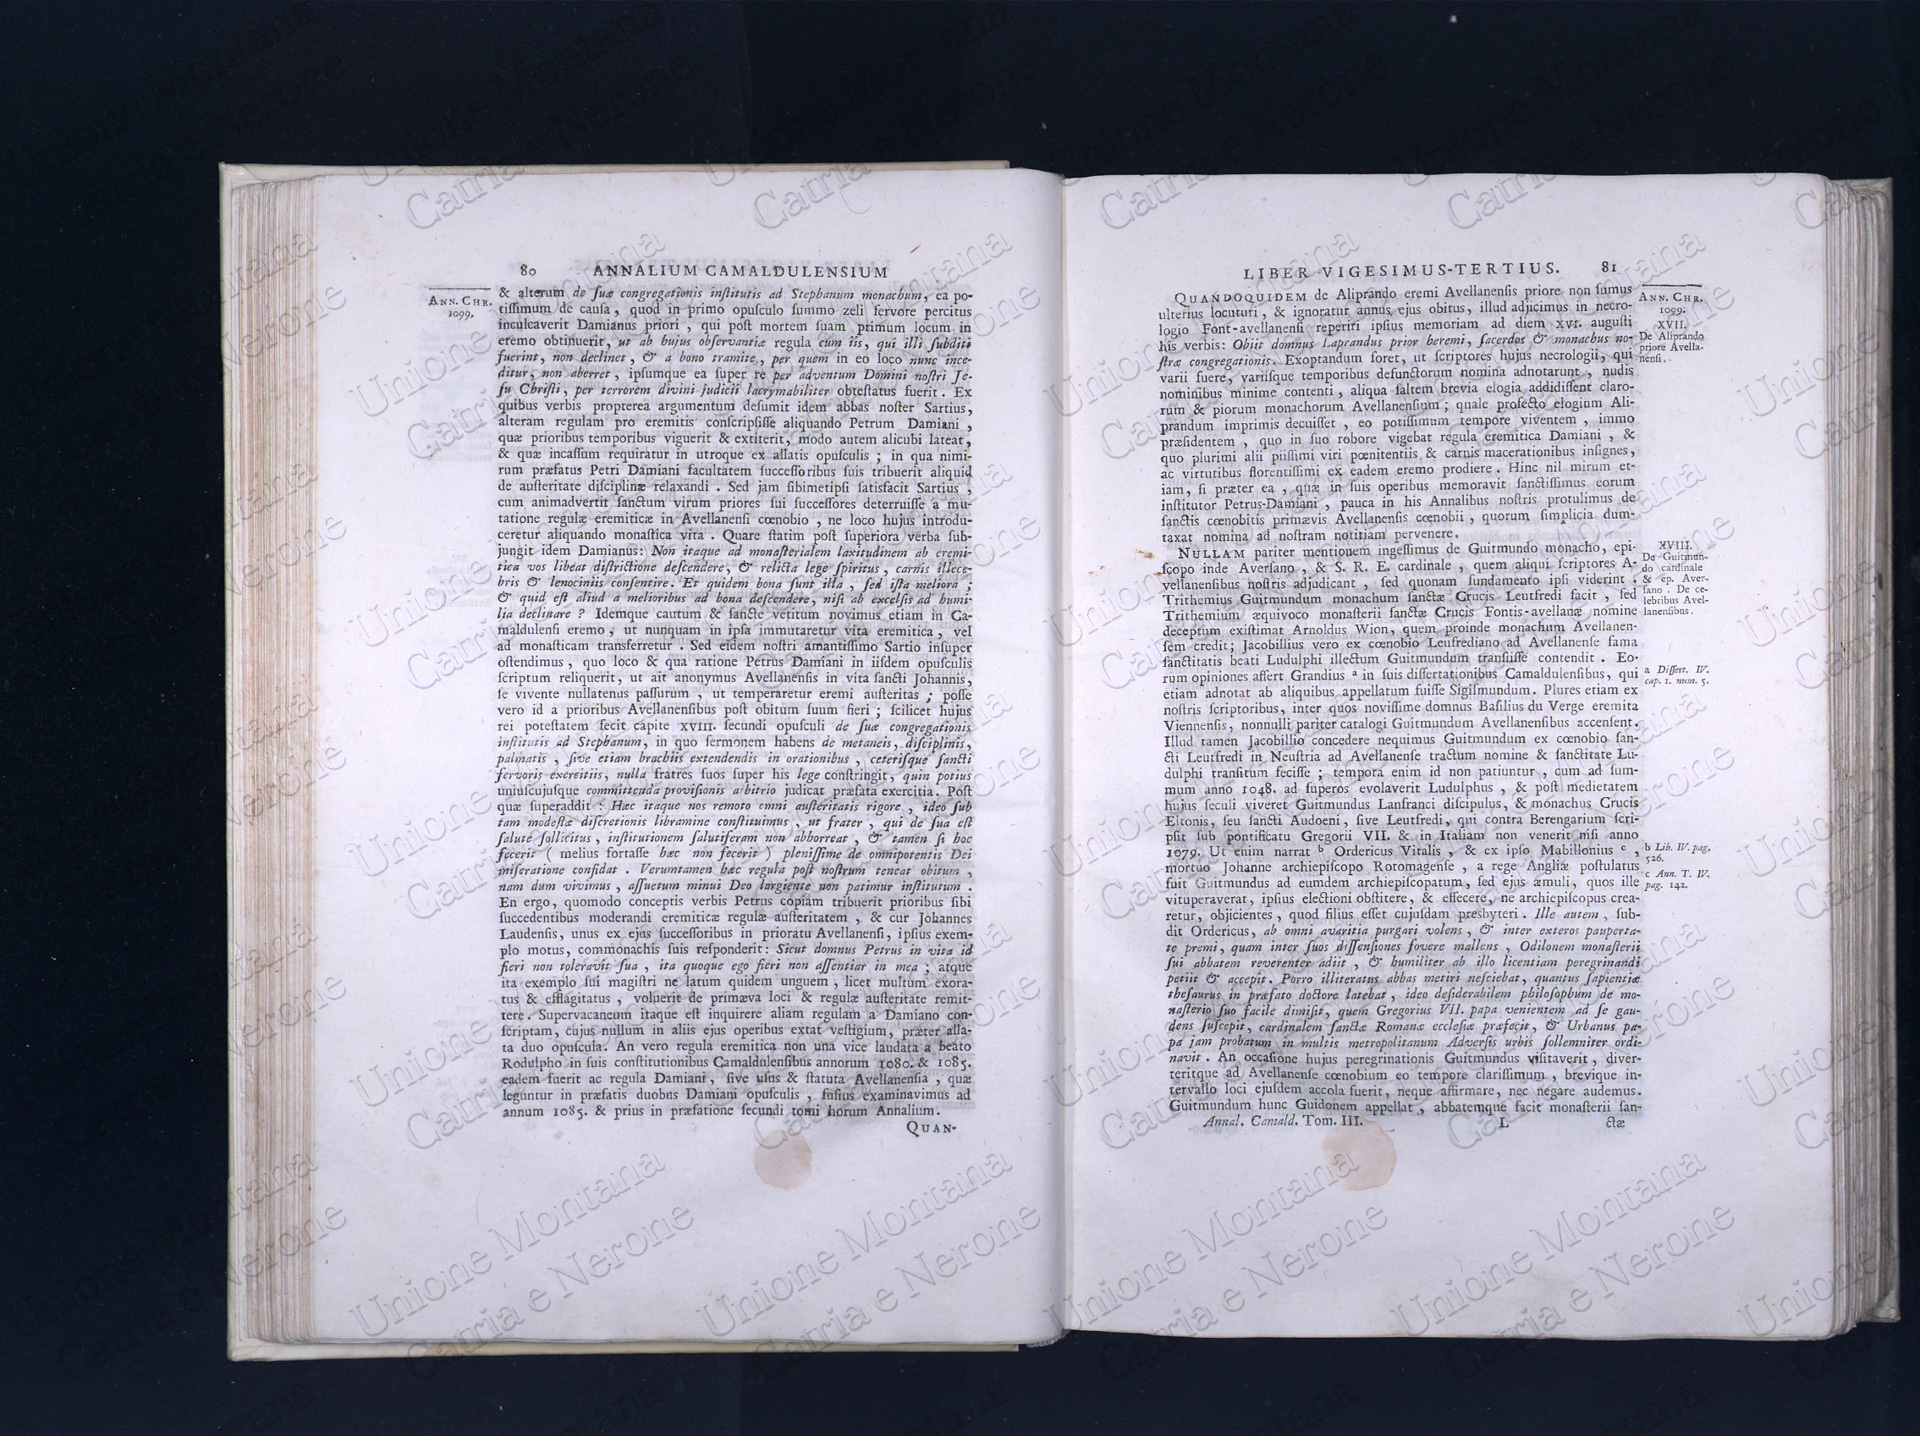 80 ANNALIUM CAMALDULENSIUM
ANN. CHR.
1099.
& alterum de ſuæ congregationis inſtitutis ad Stephanum monachum, ea po-
tiſſimum de cauſa, quod in primo opuſculo ſummo zeli fervore percitus
inculcaverit Damianus priori, qui poſt mortem ſuam primum locum in
eremo obtinuerit, ut ab hujus obſervantiæ regula cum iis, qui illi ſubditi
fuerint, non declinet, & a bono tramite, per quem in eo loco nunc ince-
ditur, non aberret, ipſumque ea ſuper re per adventum Domini noſtri Je-
ſu Chriſti, per terrorem divini judicii lacrymabiliter obteſtatus fuerit. Ex
quibus verbis propterea argumentum deſumit idem abbas noſter Sartius,
alteram regulam pro eremitis conſcripſiſſe aliquando Petrum Damiani,
quæ prioribus temporibus viguerit & extiterit, modo autem alicubi lateat,
& quæ incaſſum requiratur in utroque ex allatis opuſculis; in qua nimi-
rum præfatus Petri Damiani facultatem ſucceſſoribus ſuis tribuerit aliquid
de auſteritate diſciplinæ relaxandi. Sed jam ſibimetipſi ſatisfacit Sartius,
cum animadvertit ſanctum virum priores ſui ſucceſſores deterruiſſe a mu-
tatione regulæ eremiticæ in Avellanenſi cœnobio, ne loco hujus introdu-
ceretur aliquando monaſtica vita. Quare ſtatim poſt ſuperiora verba ſub-
jungit idem Damianus: Non itaque ad monaſterialem laxitudinem ab eremi-
tica vos libeat diſtrictione deſcendere, & relicta lege ſpiritus, carnis illece-
bris & lenociniis conſentire. Et quidem bona ſunt illa, ſed iſta meliora;
& quid eſt aliud a melioribus ad bona deſcendere, niſi ab excelſis ad humi-
lia declinare? Idemque cautum & ſancte vetitum novimus etiam in Ca-
maldulenſi eremo, ut nunquam in ipſa immutaretur vita eremitica, vel
ad monaſticam transferretur. Sed eidem noſtri amantiſſimo Sartio inſuper
oſtendimus, quo loco & qua ratione Petrus Damiani in iiſdem opuſculis
ſcriptum reliquerit, ut ait anonymus Avellanenſis in vita ſancti Johannis,
ſe vivente nullatenus paſſurum, ut temperaretur eremi auſteritas; poſſe
vero id a prioribus Avellanenſibus poſt obitum ſuum fieri; ſcilicet hujus
rei poteſtatem fecit capite XVIII. ſecundi opuſculi de ſuæ congregationis
inſtitutis ad Stephanum, in quo ſermonem habens de metaneis, diſciplinis,
palmatis, ſive etiam brachiis extendendis in orationibus, ceteriſque ſancti
fervoris exercitiis, nulla fratres ſuos ſuper his lege conſtringit, quin potius
uniuſcujuſque committenda proviſionis arbitrio judicat præfata exercitia. Poſt
quæ ſuperaddit: Hæc itaque nos remoto omni auſteritatis rigore, ideo ſub
tam modeſtæ diſcretionis libramine conſtituimus, ut frater, qui de ſua eſt
ſalute ſollicitus, inſtitutionem ſalutiferam non abhorreat, & tamen ſi hoc
fecerit (melius fortaſſe hæc non fecerit) pleniſſime de omnipotentis Dei
miſeratione confidat. Verumtamen hæc regula poſt noſtrum teneat obitum,
nam dum vivimus, aſſuetum minui Deo largiente non patimur inſtitutum.
En ergo, quomodo conceptis verbis Petrus copiam tribuerit prioribus ſibi
ſuccedentibus moderandi eremiticæ regulæ auſteritatem, & cur Johannes
Laudenſis, unus ex ejus ſucceſſoribus in prioratu Avellanenſi, ipſius exem-
plo motus, commonachis ſuis reſponderit: Sicut domnus Petrus in vita id
fieri non toleravit ſua, ita quoque ego fieri non aſſentiar in mea; atque
ita exemplo ſui magiſtri ne latum quidem unguem, licet multum exora-
tus & efflagitatus, voluerit de primæva loci & regulæ auſteritate remit-
tere. Supervacaneum itaque eſt inquirere aliam regulam a Damiano con-
ſcriptam, cujus nullum in aliis ejus operibus extat veſtigium, præter alla-
ta duo opuſcula. An vero regula eremitica non una vice laudata a beato
Rodulpho in ſuis conſtitutionibus Camaldulenſibus annorum 1080. & 1085.
eadem fuerit ac regula Damiani, ſive uſus & ſtatuta Avellanenſia, quæ
leguntur in præfatis duobus Damiani opuſculis, fuſius examinavimus ad
annum 1085. & prius in præfatione ſecundi tomi horum Annalium.
QUAN-
LIBER VIGESIMUS-TERTIUS. 81
QUANDOQUIDEM de Aliprando eremi Avellanenſis priore non ſumus
ulterius locuturi, & ignoratur annus ejus obitus, illud adjicimus in necro-
logio Font-avellanenſi reperiri ipſius memoriam ad diem XVI. auguſti
his verbis: Obiit domnus Laprandus prior heremi, ſacerdos & monachus no-
ſtræ congregationis. Exoptandum foret, ut ſcriptores hujus necrologii, qui
varii fuere, variiſque temporibus defunctorum nomina adnotarunt, nudis
nominibus minime contenti, aliqua ſaltem brevia elogia addidiſſent claro-
rum & piorum monachorum Avellanenſium; quale profecto elogium Ali-
prandum imprimis decuiſſet, eo potiſſimum tempore viventem, immo
præſidentem, quo in ſuo robore vigebat regula eremitica Damiani, &
quo plurimi alii piiſſimi viri pœnitentiis & carnis macerationibus inſignes,
ac virtutibus florentiſſimi ex eadem eremo prodiere. Hinc nil mirum et-
iam, ſi præter ea, quæ in ſuis operibus memoravit ſanctiſſimus eorum
inſtitutor Petrus-Damiani, pauca in his Annalibus noſtris protulimus de
ſanctis cœnobitis primævis Avellanenſis cœnobii, quorum ſimplicia dum-
taxat nomina ad noſtram notitiam pervenere.
NULLAM pariter mentionem ingeſſimus de Guitmundo monacho, epi-
ſcopo inde Averſano, & S. R. E. cardinale, quem aliqui ſcriptores A-
vellanenſibus noſtris adjudicant, ſed quonam fundamento ipſi viderint.
Trithemius Guitmundum monachum ſanctæ Crucis Leutfredi facit, ſed
Trithemium æquivoco monaſterii ſanctæ Crucis Fontis-avellanæ nomine
deceptum exiſtimat Arnoldus Wion, quem proinde monachum Avellanen-
ſem credit; Jacobillius vero ex cœnobio Leufrediano ad Avellanenſe fama
ſanctitatis beati Ludulphi illectum Guitmundum tranſiiſſe contendit. Eo-
rum opiniones aſſert Grandius a in ſuis diſſertationibus Camaldulenſibus, qui
etiam adnotat ab aliquibus appellatum fuiſſe Sigiſmundum. Plures etiam ex
noſtris ſcriptoribus, inter quos noviſſime domnus Baſilius du Verge eremita
Viennenſis, nonnulli pariter catalogi Guitmundum Avellanenſibus accenſent.
Illud tamen Jacobillio concedere nequimus Guitmundum ex cœnobio ſan-
cti Leutfredi in Neuſtria ad Avellanenſe tractum nomine & ſanctitate Lu-
dulphi tranſitum feciſſe; tempora enim id non patiuntur, cum ad ſum-
mum anno 1048. ad ſuperos evolaverit Ludulphus, & poſt medietatem
hujus ſeculi viveret Guitmundus Lanfranci diſcipulus, & monachus Crucis
Eltonis, ſeu ſancti Audoeni, ſive Leutfredi, qui contra Berengarium ſcri-
pſit ſub pontificatu Gregorii VII. & in Italiam non venerit niſi anno
1079. Ut enim narrat b Ordericus Vitalis, & ex ipſo Mabillonius c,
mortuo Johanne archiepiſcopo Rotomagenſe, a rege Angliæ poſtulatus
fuit Guitmundus ad eumdem archiepiſcopatum, ſed ejus æmuli, quos ille
vituperaverat, ipſius electioni obſtitere, & effecere, ne archiepiſcopus crea-
retur, objicientes, quod filius eſſet cujuſdam presbyteri. Ille autem, ſub-
dit Ordericus, ab omni avaritia purgari volens, & inter exteros pauperta-
te premi, quam inter ſuos diſſenſiones fovere mallens, Odilonem monaſterii
ſui abbatem reverenter adiit, & humiliter ab illo licentiam peregrinandi
petiit & accepit. Porro illiteratus abbas metiri neſciebat, quantus ſapientiæ
theſaurus in præfato doctore latebat, ideo deſiderabilem philoſophum de mo-
naſterio ſuo facile dimiſit, quem Gregorius VII. papa venientem ad ſe gau-
dens ſuſcepit, cardinalem ſanctæ Romanæ eccleſiæ præfecit, & Urbanus pa-
pa jam probatum in multis metropolitanum Adverſis urbis ſollemniter ordi-
navit. An occaſione hujus peregrinationis Guitmundus viſitaverit, diver-
teritque ad Avellanenſe cœnobium eo tempore clariſſimum, brevique in-
tervallo loci ejuſdem accola fuerit, neque affirmare, nec negare audemus.
Guitmundum hunc Guidonem appellat, abbatemque facit monaſterii ſan-
Annal. Camald. Tom. III. L ctæ
ANN. CHR.
1099.
XVII.
De Aliprando
priore Avella-
nenſi.
XVIII.
De Guitmun-
do cardinale
& ep. Aver-
ſano. De ce-
lebribus Avel-
lanenſibus.
a Diſſert. IV.
cap. 1. num. 5.
b Lib. IV. pag.
526.
c Ann. T. IV.
pag. 142.
Unione Montana
Catria e Nerone